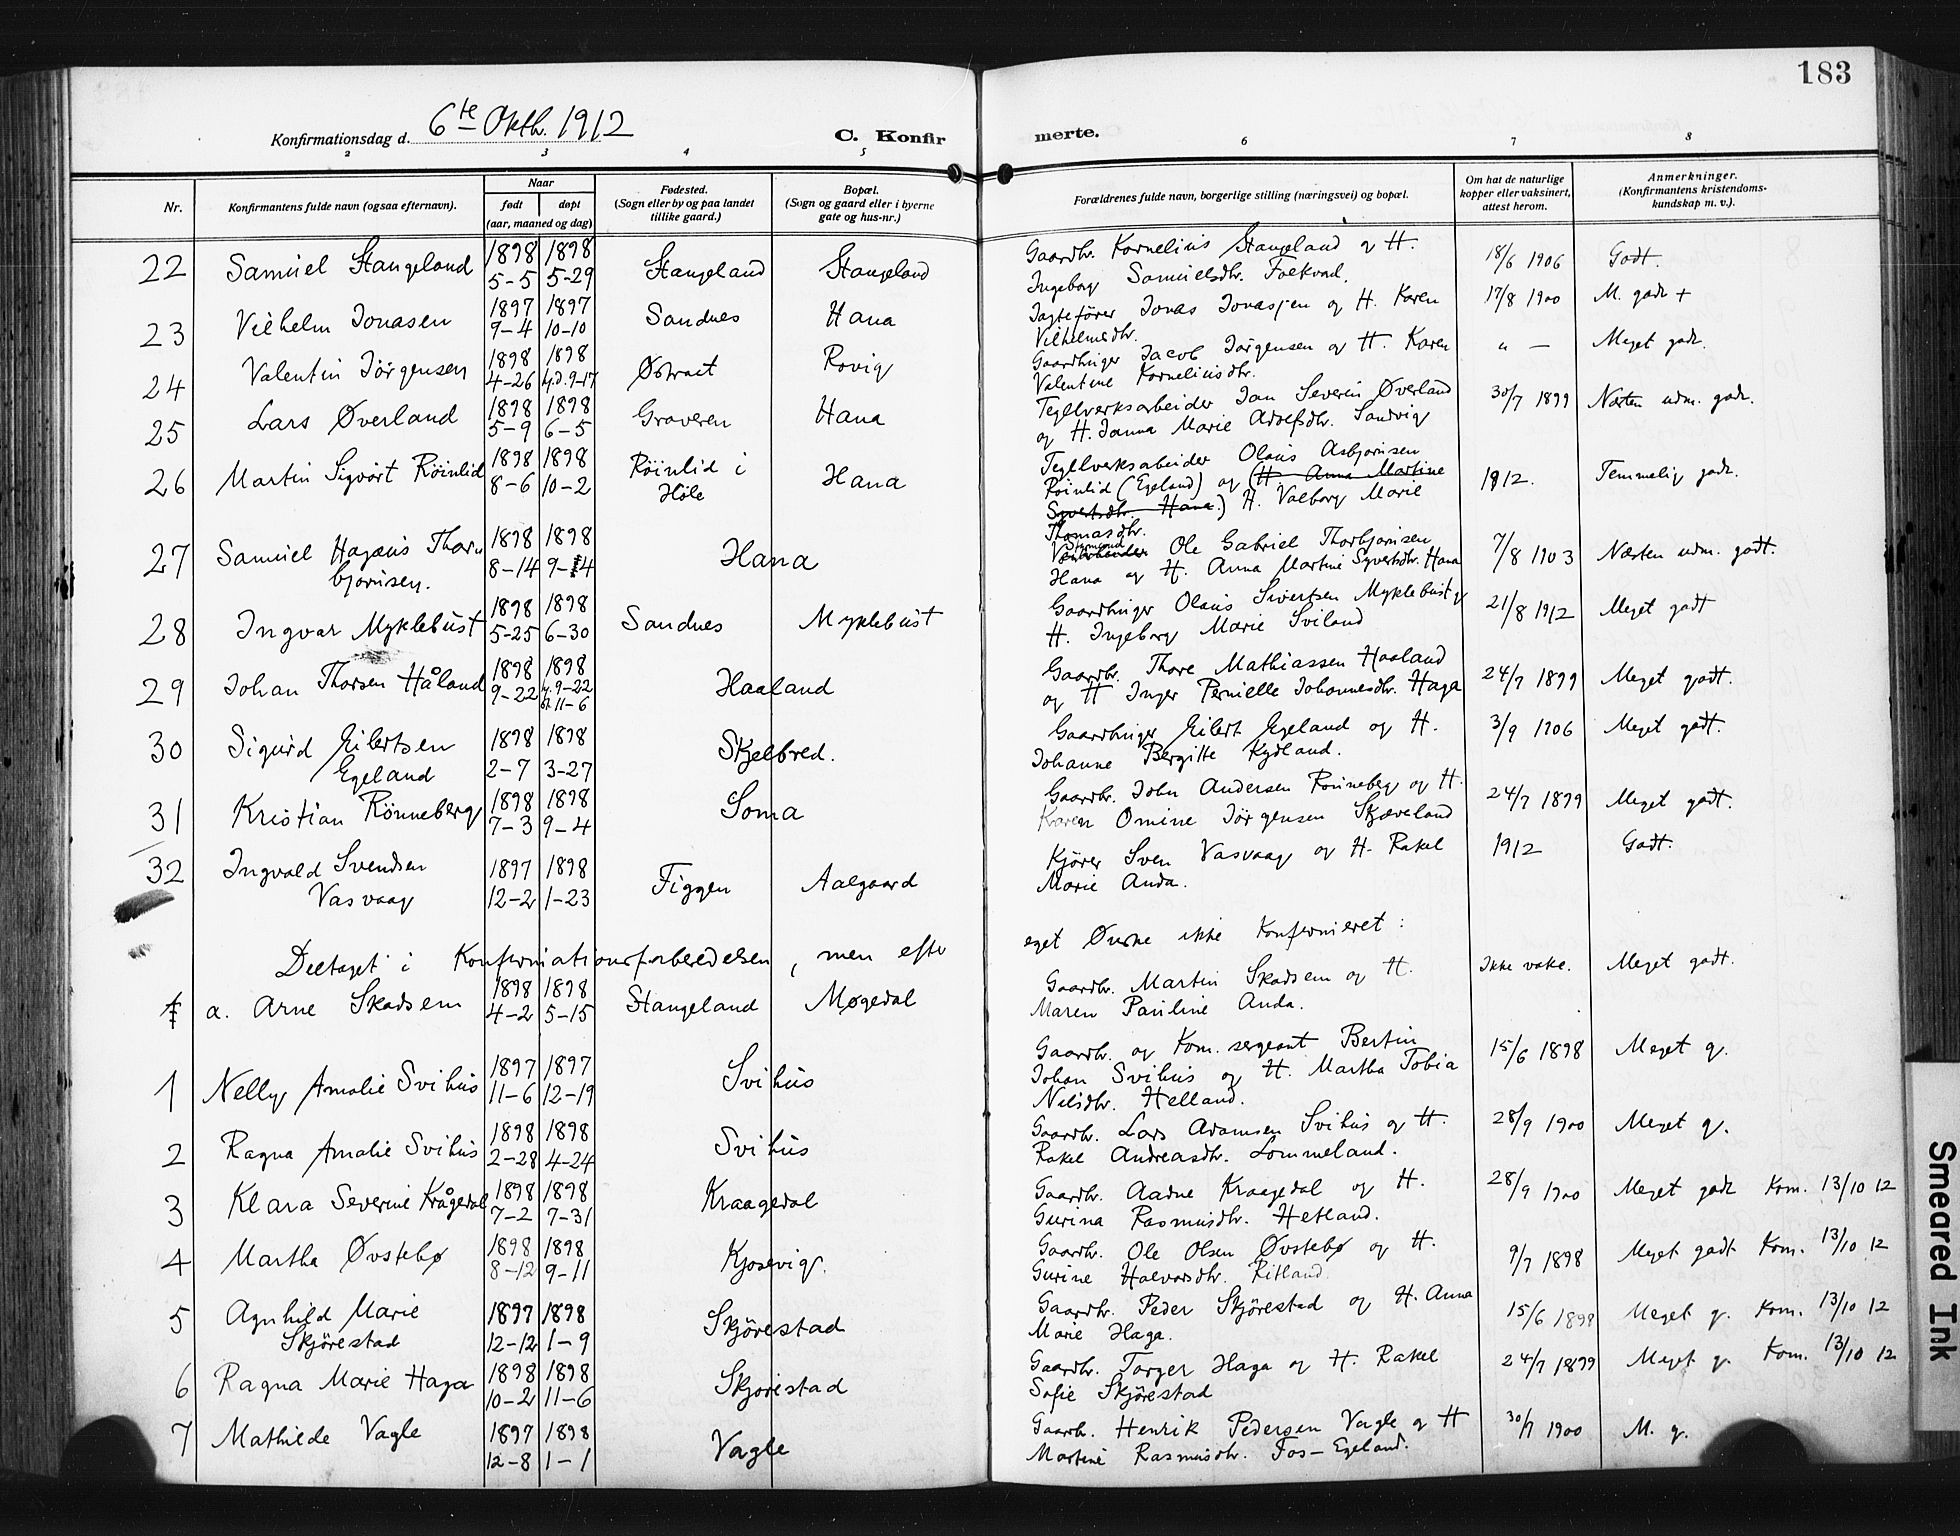 183
Konfirmationsdag d. 6te Oktb. 1912
C. Konfir
merte.
2 3 4 5 6 7 8
Nr.
Konfirmantens fulde navn (ogsaa efternavn).
Naar
født døpt
(aar, maaned og dag)
Fødested.
(Sogn eller by og paa landet
tillike gaard.)
Bopæl.
(Sogn og gaard eller i byerne
gate og hus-nr.)
Forældrenes fulde navn, borgerlige stilling (næringsvei) og bopæl.
Om hat de naturlige
kopper eller vaksinert,
attest herom.
Anmerkninger.
(Konfirmantens kristendoms-
kundskap m. v.).
22 Samuel Stangeland 1898 5-5 1898 5-29 Stangeland Stangeland
Gaardbr. Kornelius Stangeland og H.
Ingeborg Samuelsdtr. Foekvad. 18/6 1906 Godt.
23 Vilhelm Jonasen 1897 9-4 1897 10-10 Sandnes Hana
Jagtefører Jonas Jonassen og H. Karen
Vilhelmsdtr. 17/8 1900 M. godt +
24 Valentin Jørgensen 1898 4-26 1898 hj.d. 9-17 Østraat Rovig
Gaardbruger Jacob Jørgensen og H. Karen
Valentine Korneliusdtr. " — Meget godt.
25 Lars Øverland 1898 5-9 1898 6-5 Graveren Hana
Teglverksarbeider Jan Severin Øverland
og H. Janna Marie Adolfsdtr. Sandvig 30/7 1899 Næsten udm. godt.
26 Martin Sigvart Röinlid 1898 8-6 1898 10-2 Röinlid i
Höle Hana
Teglverksarbeider Olaus Asbjørnsen
Röinlid (Egeland) og (H. Anna Martine
Syvertsdtr. Hana.) H. Valborg Marie
Thomasdtr. 1912. Temmelig godt.
27 Samuel Hagæus Thor-
bjørnsen. 1898 8-14 1898 9-4 Hana
Ole Gabriel Thorbjørnsen
Hana og H. Anna Martine Syvertsdtr. Hana 7/8 1903 Næsten udm. godt.
28 Ingvar Myklebust 1898 5-25 1898 6-30 Sandnes Myklebust
Gaardbruger Olaus Sivertsen Myklebust og
H. Ingeborg Marie Sviland 21/8 1912 Meget godt
29 Johan Thorsen Håland 1898 9-22 1898 hj. 9-22
k. 11-6 Haaland
Gaardbr. Thore Mathiassen Haaland
og H Inger Pernille Johannesdtr. Haga 24/7 1899 Meget godt.
30 Sigurd Eilertsen
Egeland 1898 2-7 1898 3-27 Skjelbred.
Gaardbruger Eilert Egeland og H.
Johanne Bergitte Kydland. 3/9 1906 Meget godt.
31 Kristian Rönneberg 1898 7-3 1898 9-4 Soma
Gaardbr. John Andersen Rönneberg og H.
Karen Omine Jörgensen Skjæveland 24/7 1899 Meget godt.
32 Ingvald Svendsen
Vasvaag 1897 12-2 1898 1-23 Figgen Aalgaard
Kjører Sven Vasvaag og H. Rakel
Marie Anda. 1912 Godt.
Deltaget i Konfirmationsforberedelsen, men efter
eget Ønske ikke Konfirmeret:
a. Arne Skadsem 1898 4-2 1898 5-15 Stangeland Møgedal
Gaardbr. Martin Skadsem og H.
Maren Pauline Anda. Ikke vakc. Meget godt.
1 Nelly Amalie Svihus 1897 11-6 1897 12-19 Svihus
Gaardbr. og Kom. sergeant Bertin
Johan Svihus og H. Martha Tobia
Nilsdtr. Helland. 15/6 1898 Meget g.
2 Ragna Amalie Svihus 1898 2-28 1898 4-24 Svihus
Gaardbr. Lars Adamsen Svihus og H.
Rakel Andreasdtr. Lommeland. 28/9 1900 Meget g.
3 Klara Severine Krågedal 1898 7-2 1898 7-31 Kraagedal
Gaardbr. Aadne Kraagedal og H.
Gurina Rasmusdtr. Hetland. 28/9 1900 Meget godt Kom. 13/10 12
4 Martha Øvstebø 1898 8-12 1898 9-11 Kjosevig.
Gaardbr. Ole Olsen Øvstebø og H.
Gurine Halvorsdtr. Ritland. 9/7 1898 Meget godt Kom. 13/10 12
5 Agnhild Marie
Skjörestad 1897 12-12 1898 1-9 Skjörestad
Gaardbr. Peder Skjörestad og H. Anna
Marie Haga. 15/6 1898 Meget g. Kom. 13/10 12
6 Ragna Marie Haga 1898 10-2 1898 11-6 Skjörestad
Gaardbr. Torger Haga og H. Rakel
Sofie Skjörestad 24/7 1899 Meget g. Kom. 13/10 12
7 Mathilde Vagle 1897 12-8 1898 1-1 Vagle
Gaardb. Henrik Pedersen Vagle og H
Martine Rasmusdtr. Fos-Egeland. 30/7 1900 M. g.
Smeared Ink